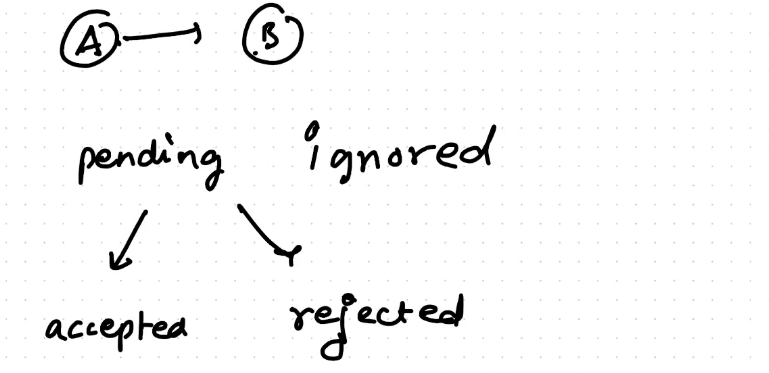 A B
pending ignored
accepted rejected